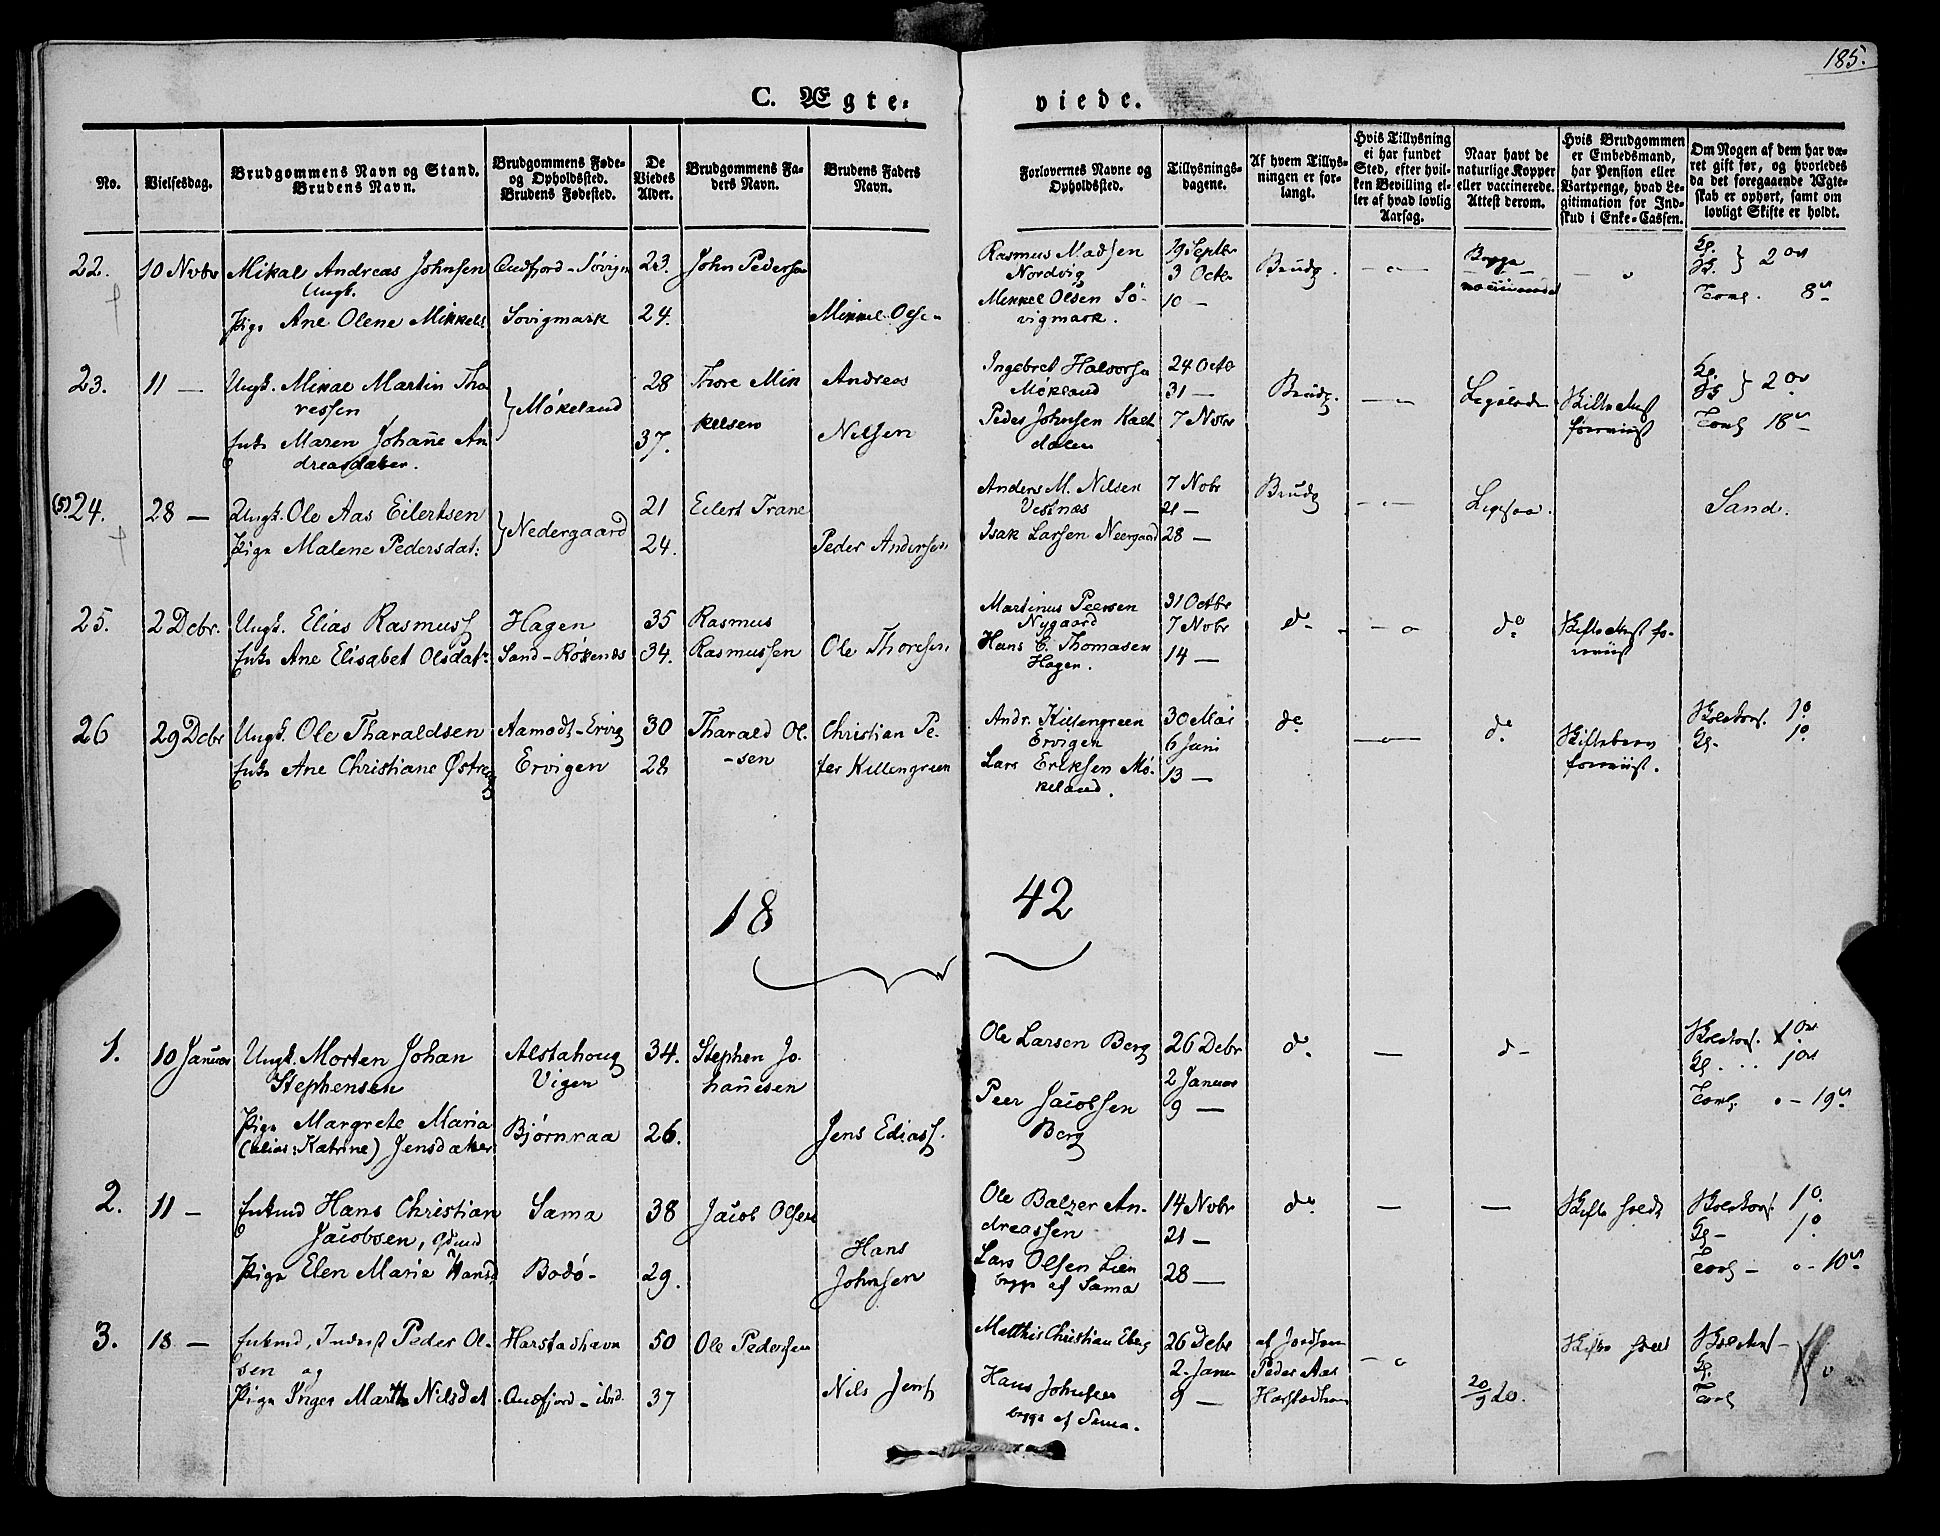 185.
C. Ægte-
viede.
No.
Vielsesdag.
Brudgommens Navn og Stand.
Brudens Navn.
Brudgommens Føde-
og Opholdssted.
Brudens Fødested.
De
Viedes
Alder.
Brudgommens Fa-
ders Navn.
Brudens Faders
Navn.
Forlovernes Navne og
Opholdssted.
Tillysnings-
dagene.
Af hvem Tillys-
ningen er for-
langt.
Hvis Tillysning
ei har fundet
Sted, efter hvil-
ken Bevilling el-
ler af hvad lovlig
Aarsag.
Naar havt de
naturlige Kopper
eller vaccinerede.
Attest derom.
Hvis Brudgommen
er Embedsmand,
har Pension eller
Vartpenge, hvad Le-
gitimation for Ind-
skud i Enke-Cassen.
Om Nogen af dem har væ-
ret gift før, og hvorledes
da det foregaaende Ægte-
skab er ophørt, samt om
lovligt Skifte er holdt.
22. 10 Nvbr Mikal Andreas Johnsen
Ungk.
Qvæfjord - Søvign 23. John Pedersen
Pige Ane Olene Mikkels Sovigmark 24. Mikkel Olse-
Rasmus Madsen
Nordvig
Mikkel Olsen Sö-
vigmark.
19 Septbr
3 Octbr
10 -
Brudg.
Begge
vaccinered
2 ort
8 s
23. 11 - Ungk. Mikal Martin Tho
ressen
Enke Maren Johañe An
dreasdatter.
Møkeland
28
37.
Thore Mik
kelsen
Andreas
Nilsen
Ingebret Halvorsn
Møkeland
Peder Johnsen Kalt
dalen
24 Octo
31 -
7 Nobr
Brudg.
Ligeledes
Skifte Attest
foreviist
2 ort
18 s
(5) 24. 28 - Ungk. Ole Aas Eilertsen
Pige Malene Pedersdat:
Nedergaard
21
24.
Eilert Trane
Peder Andersen
Anders M. Nilsen
Vestnæs
Isak Larsen Neergaard
7 Nobr
21 -
28 -
Brudg
Ligesaa.
Sand.
25. 2 Debr. Ungk. Elias Rasmuss
Enke Ane Elisabet Olsdatr
Hagen
Sand - Røkenæs
35
34.
Rasmus
Rasmussen
Ole Thoresen
Martinus Peersen
Nygaard
Hans C. Thomasen
Hagen.
31 Octbr
7 Nobr
14 -
do
do
Skifte Attest fo-
reviist
26 29 Debr Ungk. Ole Tharaldsen
Enke Ane Christiane Østre
Aamodt - Ervig
Ervigen
30
28
Tharald Ol-
-sen
Christian Pe-
ter Killengreen
Andr. Killengreen
Ervigen
Lars Eriksen Mø-
keland.
30 Mai
6 Juni
13 -
do
do
Skiftebrev
foreviist.
1 o
1 o
18 42
1. 10 Januar Ungk. Morten Johan
Stephensen
Pige Margrete Maria
(alias: Katrine) Jensdatter
Alstahoug
Vigen
Bjørnraa
34.
26.
Stephen Jo-
hañesen
Jens Ediass.
Ole Larsen Berg
Peer Jacobsen
Berg
26 Debr
2 Januar
9 -
do
-
d-
1 ort
1 ort
o - 19 s
2. 11 - Enkmd Hans Christian
Jacobsen,
Pige Elen Marie Hansd
Sama
Bodö-
38
29.
Jacob Olsen
Hans
Johnsen
Ole Balzer An-
dreassen
Lars Olsen Lien
begge af Sama
14 Nobr
21 -
28 -
do
-
-
Skifte holdt
1 o
1 o
o - 10 s
3. 13 - Enkmd, Inderst Peder Ol-
sen og
Pige Inger Marth Nilsdat
Harstadhavn
Qvæfjord - ibid.
50
37
Ole Pedersen
Nils Jens
Matthis Christian Eberg
Hans Johnsen
begge af Sama.
26 Debr
2. Janu
9 -
Peder Aas
Harstadhavn
20/9 20.
Skifte holdt